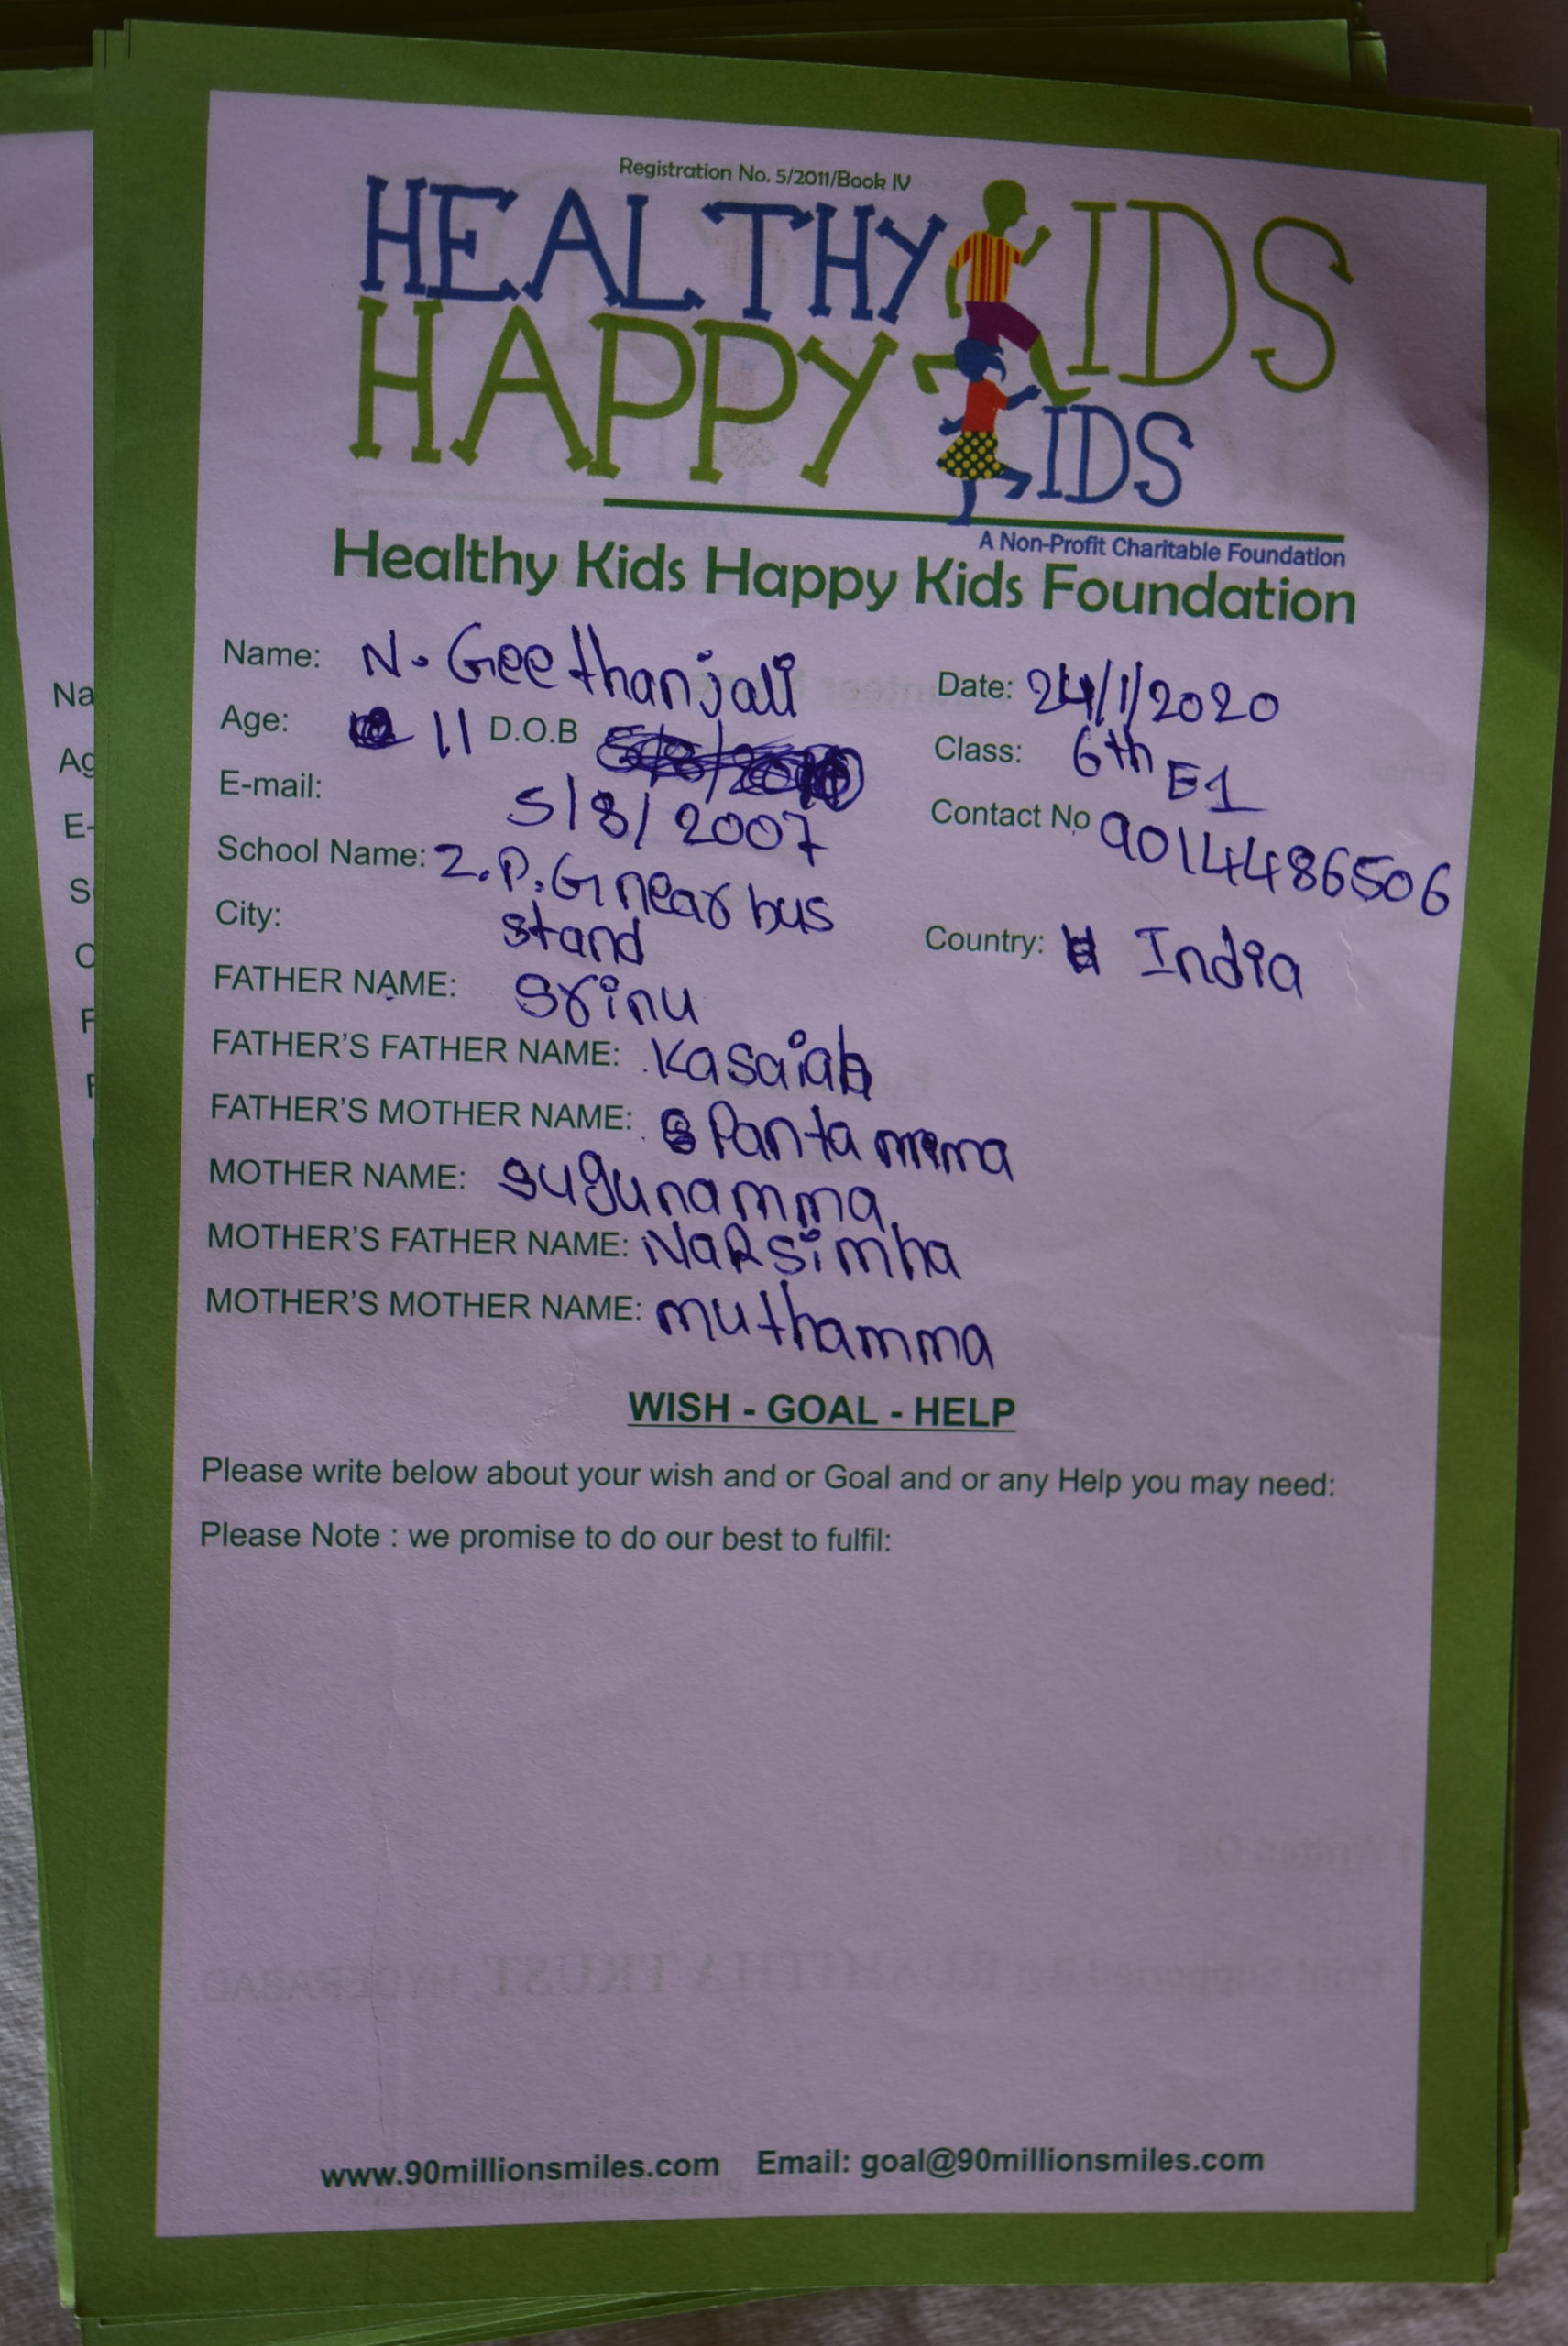 Registration No. 5/2011/Book IV
HEALTHY KIDS
HAPPY KIDS
A Non-Profit Charitable Foundation
Healthy Kids Happy Kids Foundation
Name: N. Geethanjali Date: 24/1/2020
Age: 11 D.O.B Class: 6th E1
E-mail: 5/8/2007 Contact No 9014486506
School Name: Z.P.G near bus
stand
City: Country: India
FATHER NAME: Srinu
FATHER'S FATHER NAME: Kasaiah
FATHER'S MOTHER NAME: Pantamma
MOTHER NAME: Sugunamma.
MOTHER'S FATHER NAME: NaRsimha
MOTHER'S MOTHER NAME: muthamma
WISH - GOAL - HELP
Please write below about your wish and or Goal and or any Help you may need:
Please Note : we promise to do our best to fulfil:
www.90millionsmiles.com Email: goal@90millionsmiles.com